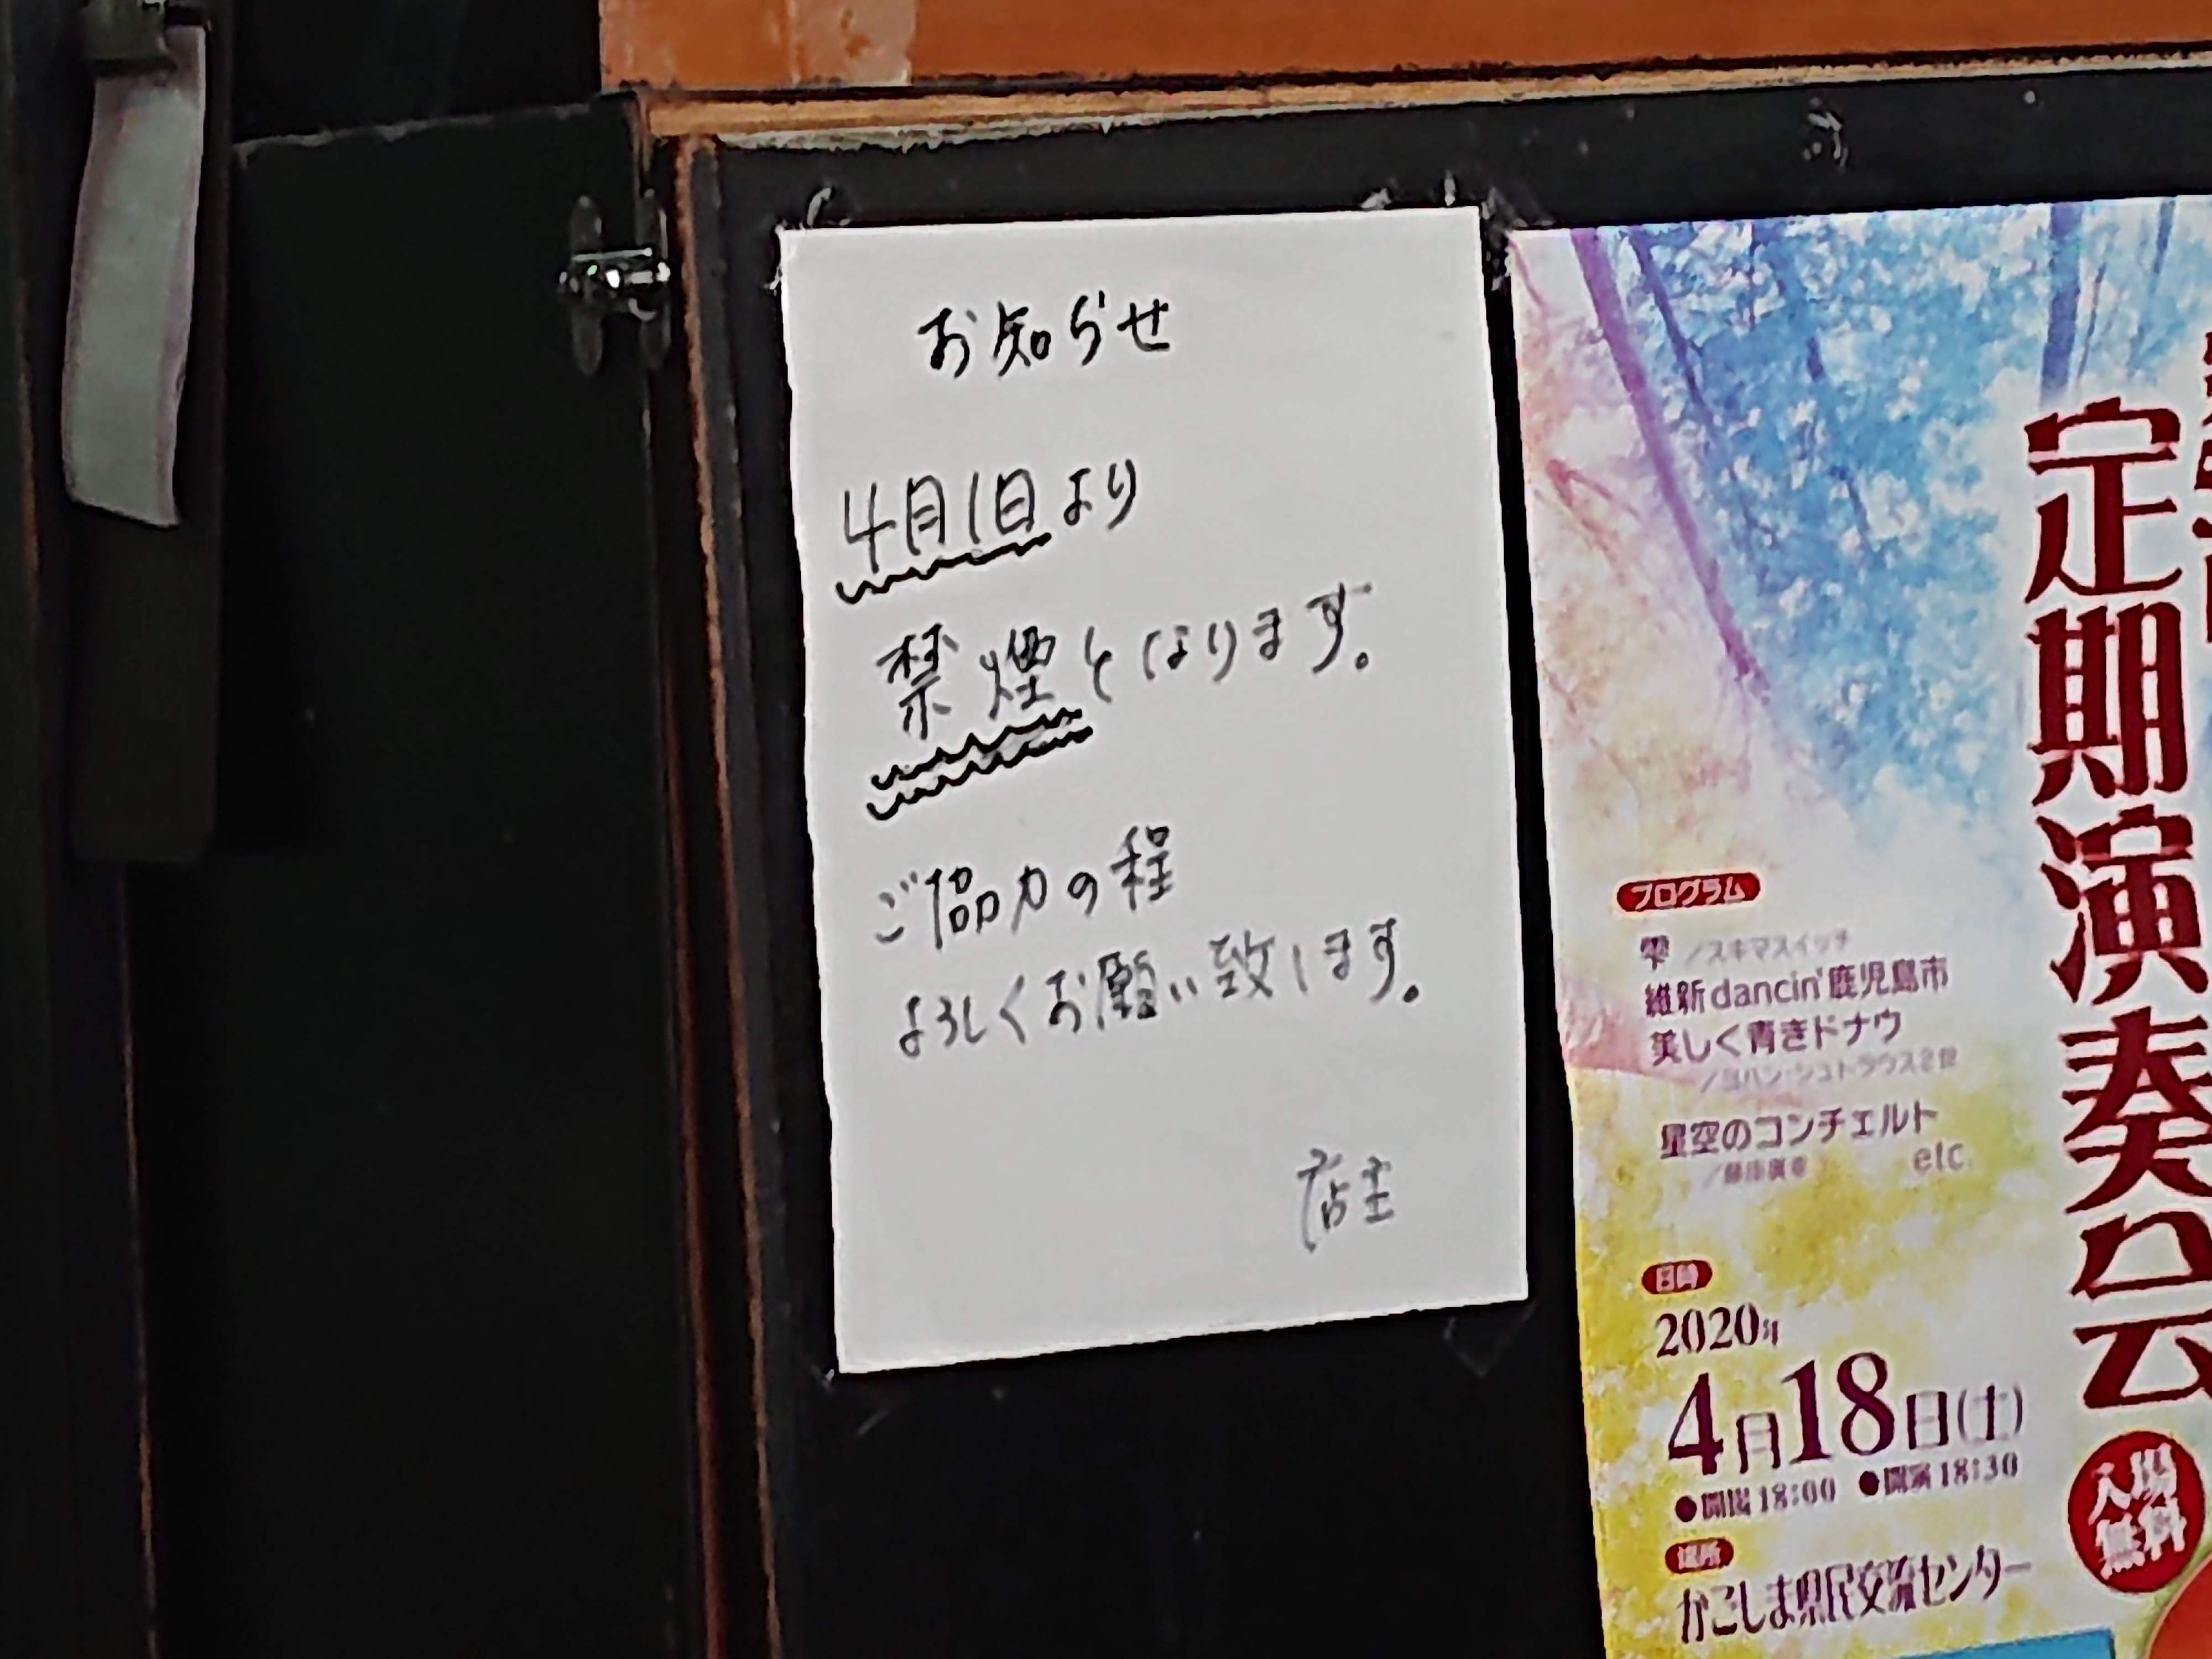 お知らせ
4月1日より
禁煙となります。
ご協力の程
よろしくお願い致します。
店主
定期演奏会
プログラム
雫／スキマスイッチ
維新dancin'鹿児島市
美しく青きドナウ
／ヨハン・シュトラウス2世
星空のコンチェルト
／藤掛廣幸 etc
日時
2020年
4月18日(土)
●開場18:00 ●開演18:30
入場
無料
場所
かごしま県民交流センター